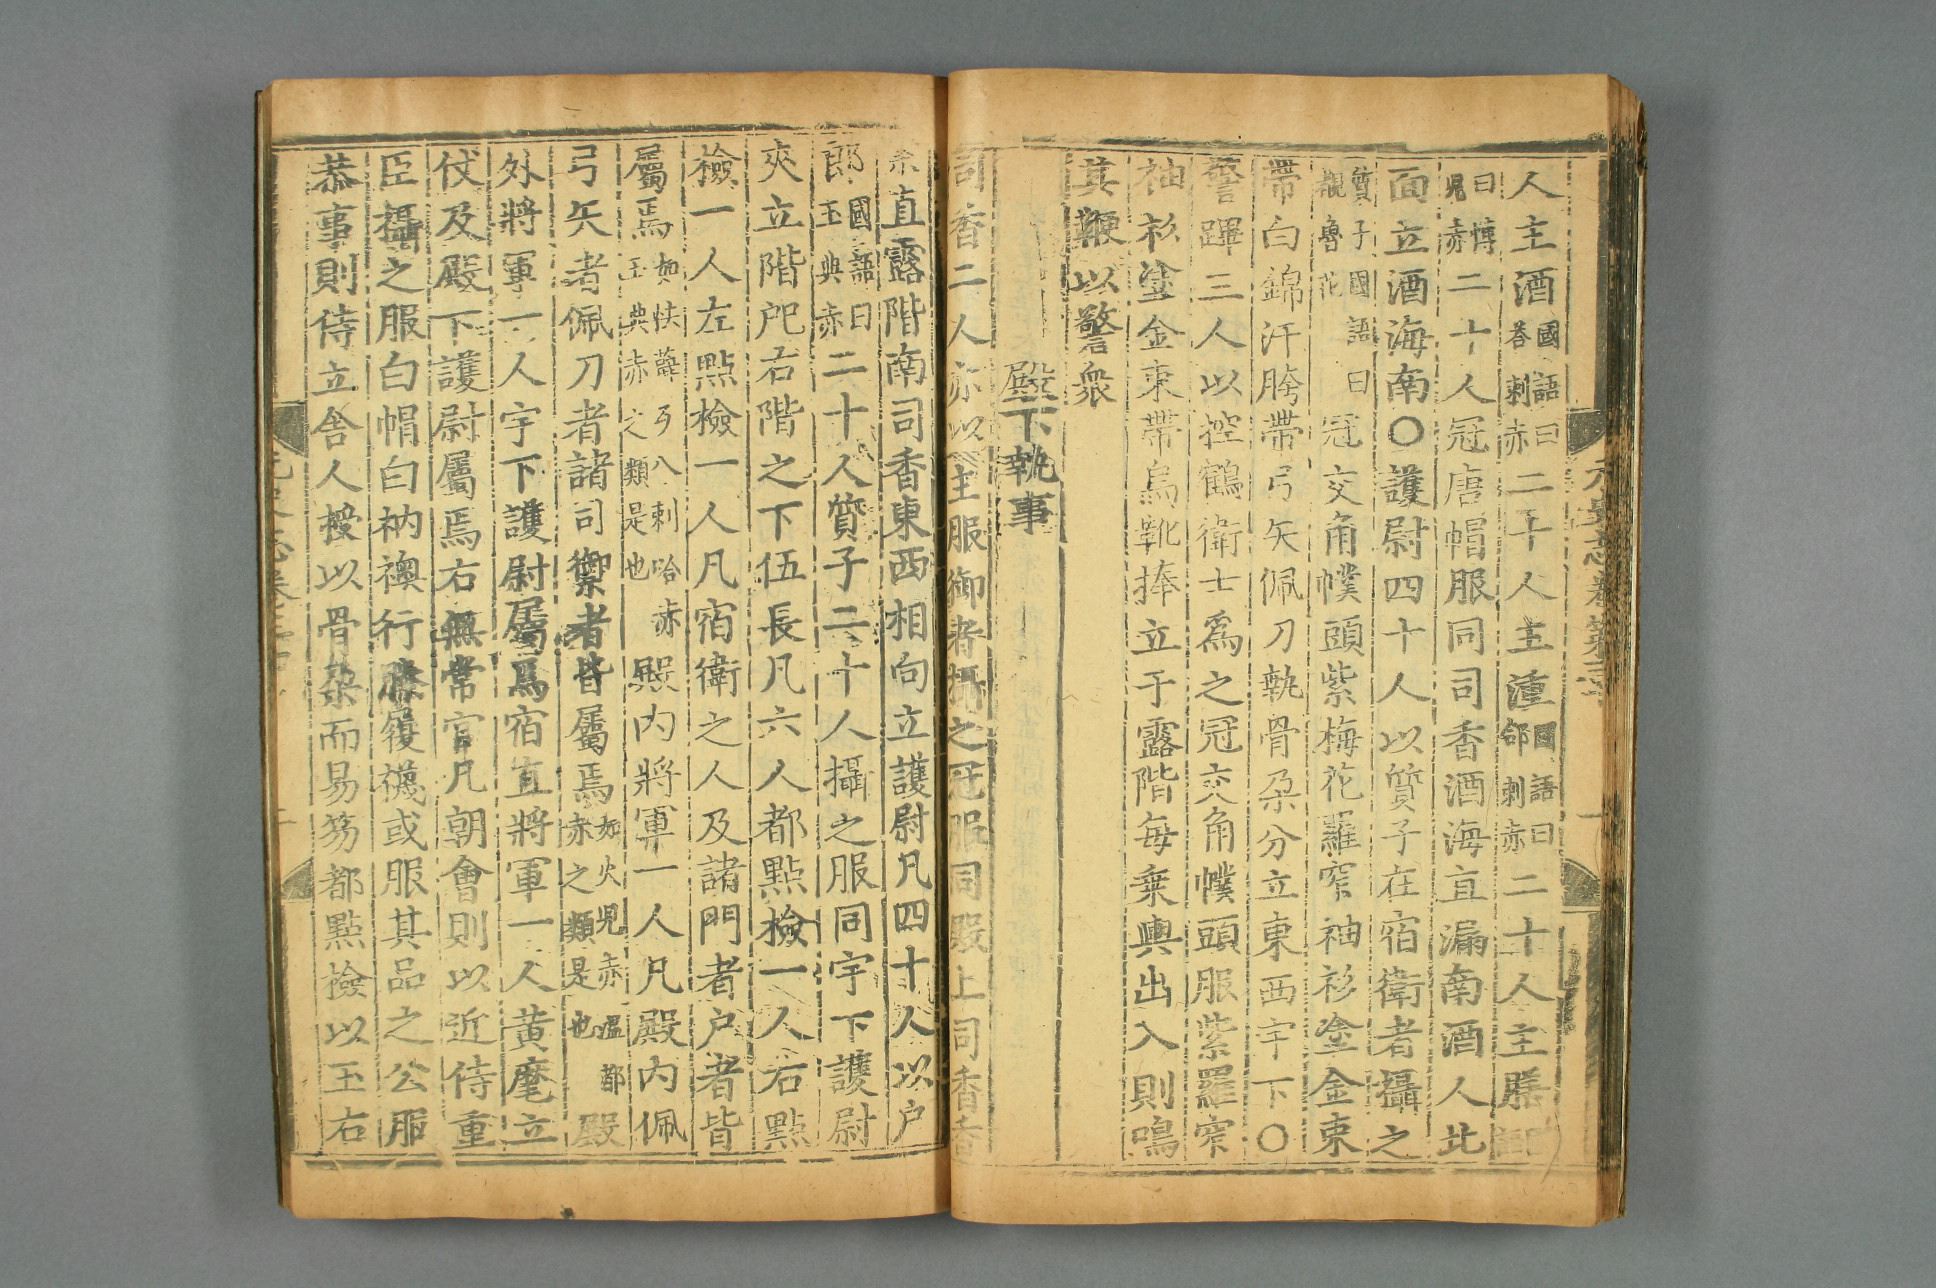 人主酒國語曰荅剌赤二十人主湩國語曰郃剌赤二十人主膳國語
曰博兒赤二十人冠唐帽服同司香酒海直漏南酒人北
面立酒海南〇護尉四十人以質子在宿衛者攝之
質子國語曰覩魯花冠交角幞頭紫梅花羅窄袖衫塗金束
帶白錦汗胯帶弓矢佩刀執骨朶分立東西宇下〇
警蹕三人以控鶴衛士爲之冠交角幞頭服紫羅窄
袖衫塗金束帶烏靴捧立于露階每乘輿出入則鳴
其鞭以警衆
殿下執事
司香二人亦以主服御者攝之冠服同殿上司香香
案直露階南司香東西相向立護尉凡四十人以户
郎國語曰玉典赤二十人質子二十人攝之服同宇下護尉
夾立階戺右階之下伍長凡六人都點檢一人右點
檢一人左點檢一人凡宿衛之人及諸門者户者皆
屬焉如怯薛歹八剌哈赤玉典赤之類是也殿内將軍一人凡殿内佩
弓矢者佩刀者諸司御者皆屬焉如火兒赤溫都赤之類是也殿
外將軍一人宇下護尉屬焉宿直將軍一人黄麾立
仗及殿下護尉屬焉右無常官凡朝會則以近侍重
臣攝之服白帽白衲襖行縢履襪或服其品之公服
恭事則侍立舍人授以骨朶而易笏都點檢以玉右
元史志卷第三十